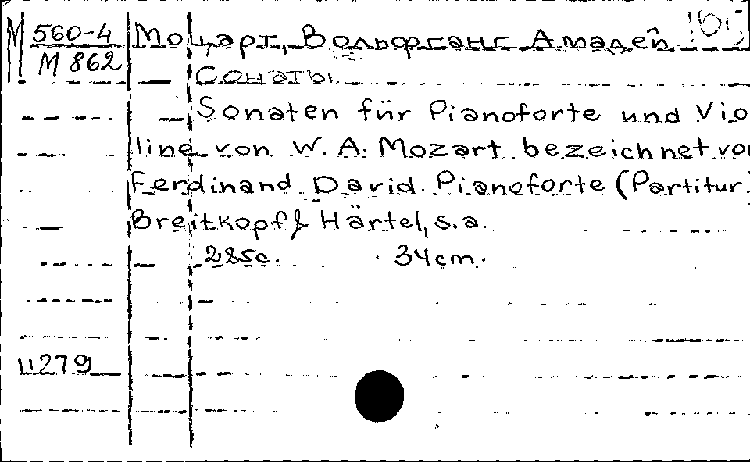 М 560-4 Моцарт, Вольфганг Амадей
М 862 Сонаты.
Sonaten für Pianoforte und Vio
line von W. A. Mozart bezeichnet von
Ferdinand David. Pianoforte (Partitur)
Breitkopf & Härtel, s.a.
285c. 34cm.
11279